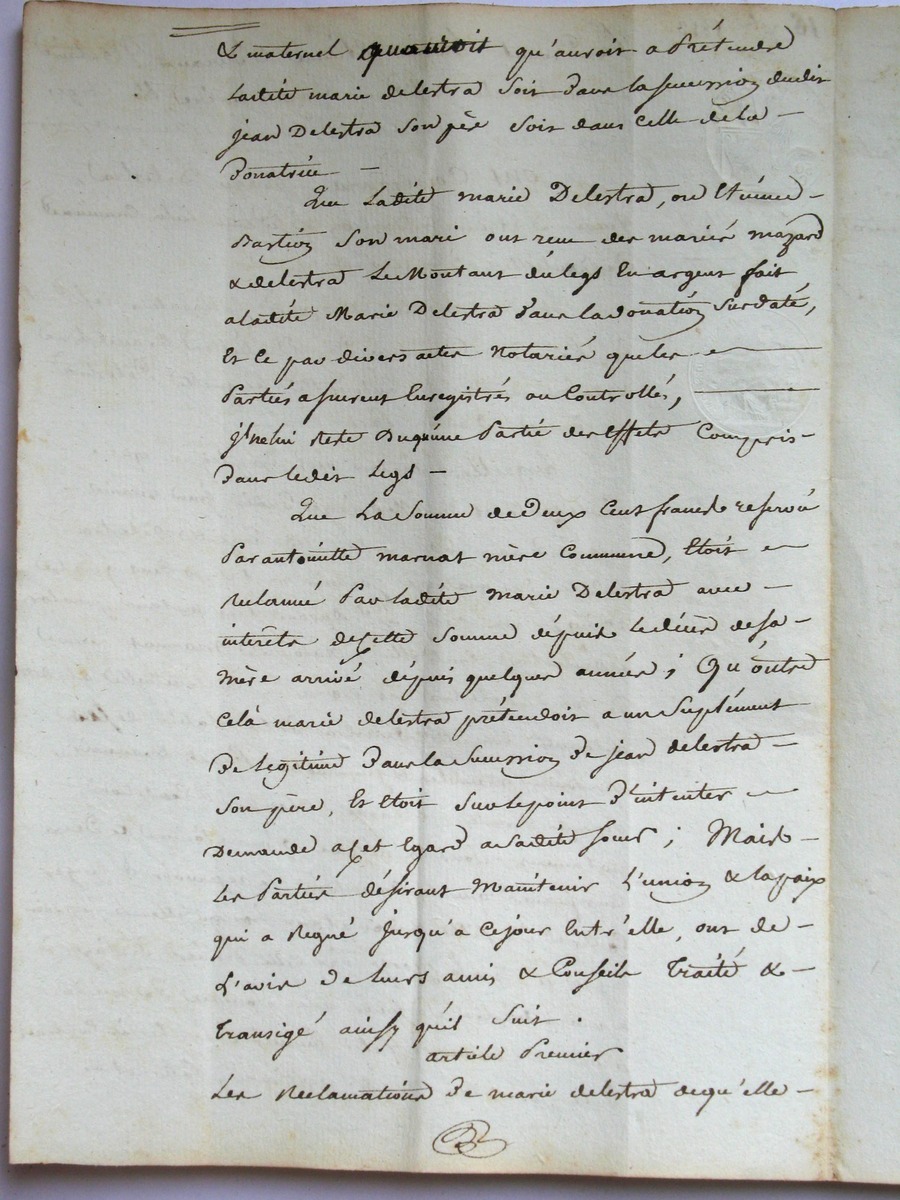 & maternel quauroit qu'auroit a Prétendre
Ladite marie delestra Soit Dans la succession dudit
jean Delestra Son père Soit dans Celle de la —
Donatrice —
Que Ladite marie Delestra, ou Etienne —
Bastion Son mari ont recu des mariés mazard
& delestra Le Montant du legs En argent fait
a ladite Marie Delestra Dans la donation Surdaté,
Et Ce par divers actes Notariés que les —
Parties assurent Enregistrés ou Controllés, —
jl ne lui Reste Du qu'une Partie des Effets Compris —
Dans ledit Legs —
Que La Somme de Deux Cent francs reservée
Par antoinette marnat mère Commune, Etoit —
Reclamée Par Ladite marie Delestra avec —
interêts de cette Somme dépuis le décès de sa —
mère arrivé dépuis quelques années ; Qu'outre
Celà marie delestra prétendoit a un Suplément
De Legitime Dans la Succession De jean delestra —
Son père, Et Etoit Sur le point D'intenter —
Demande a Cet Egard a Sadite Soeur ; Mais —
Les Parties désirant Maintenir L'union & la paix
qui a Regné jusqu'a Ce jour Entr'elle, ont de —
L'avis De leurs amis & Conseils Traité & —
Transigé ainsy qu'il Suit .
article Premier
Les Reclamations De marie delestra de qu'elle —